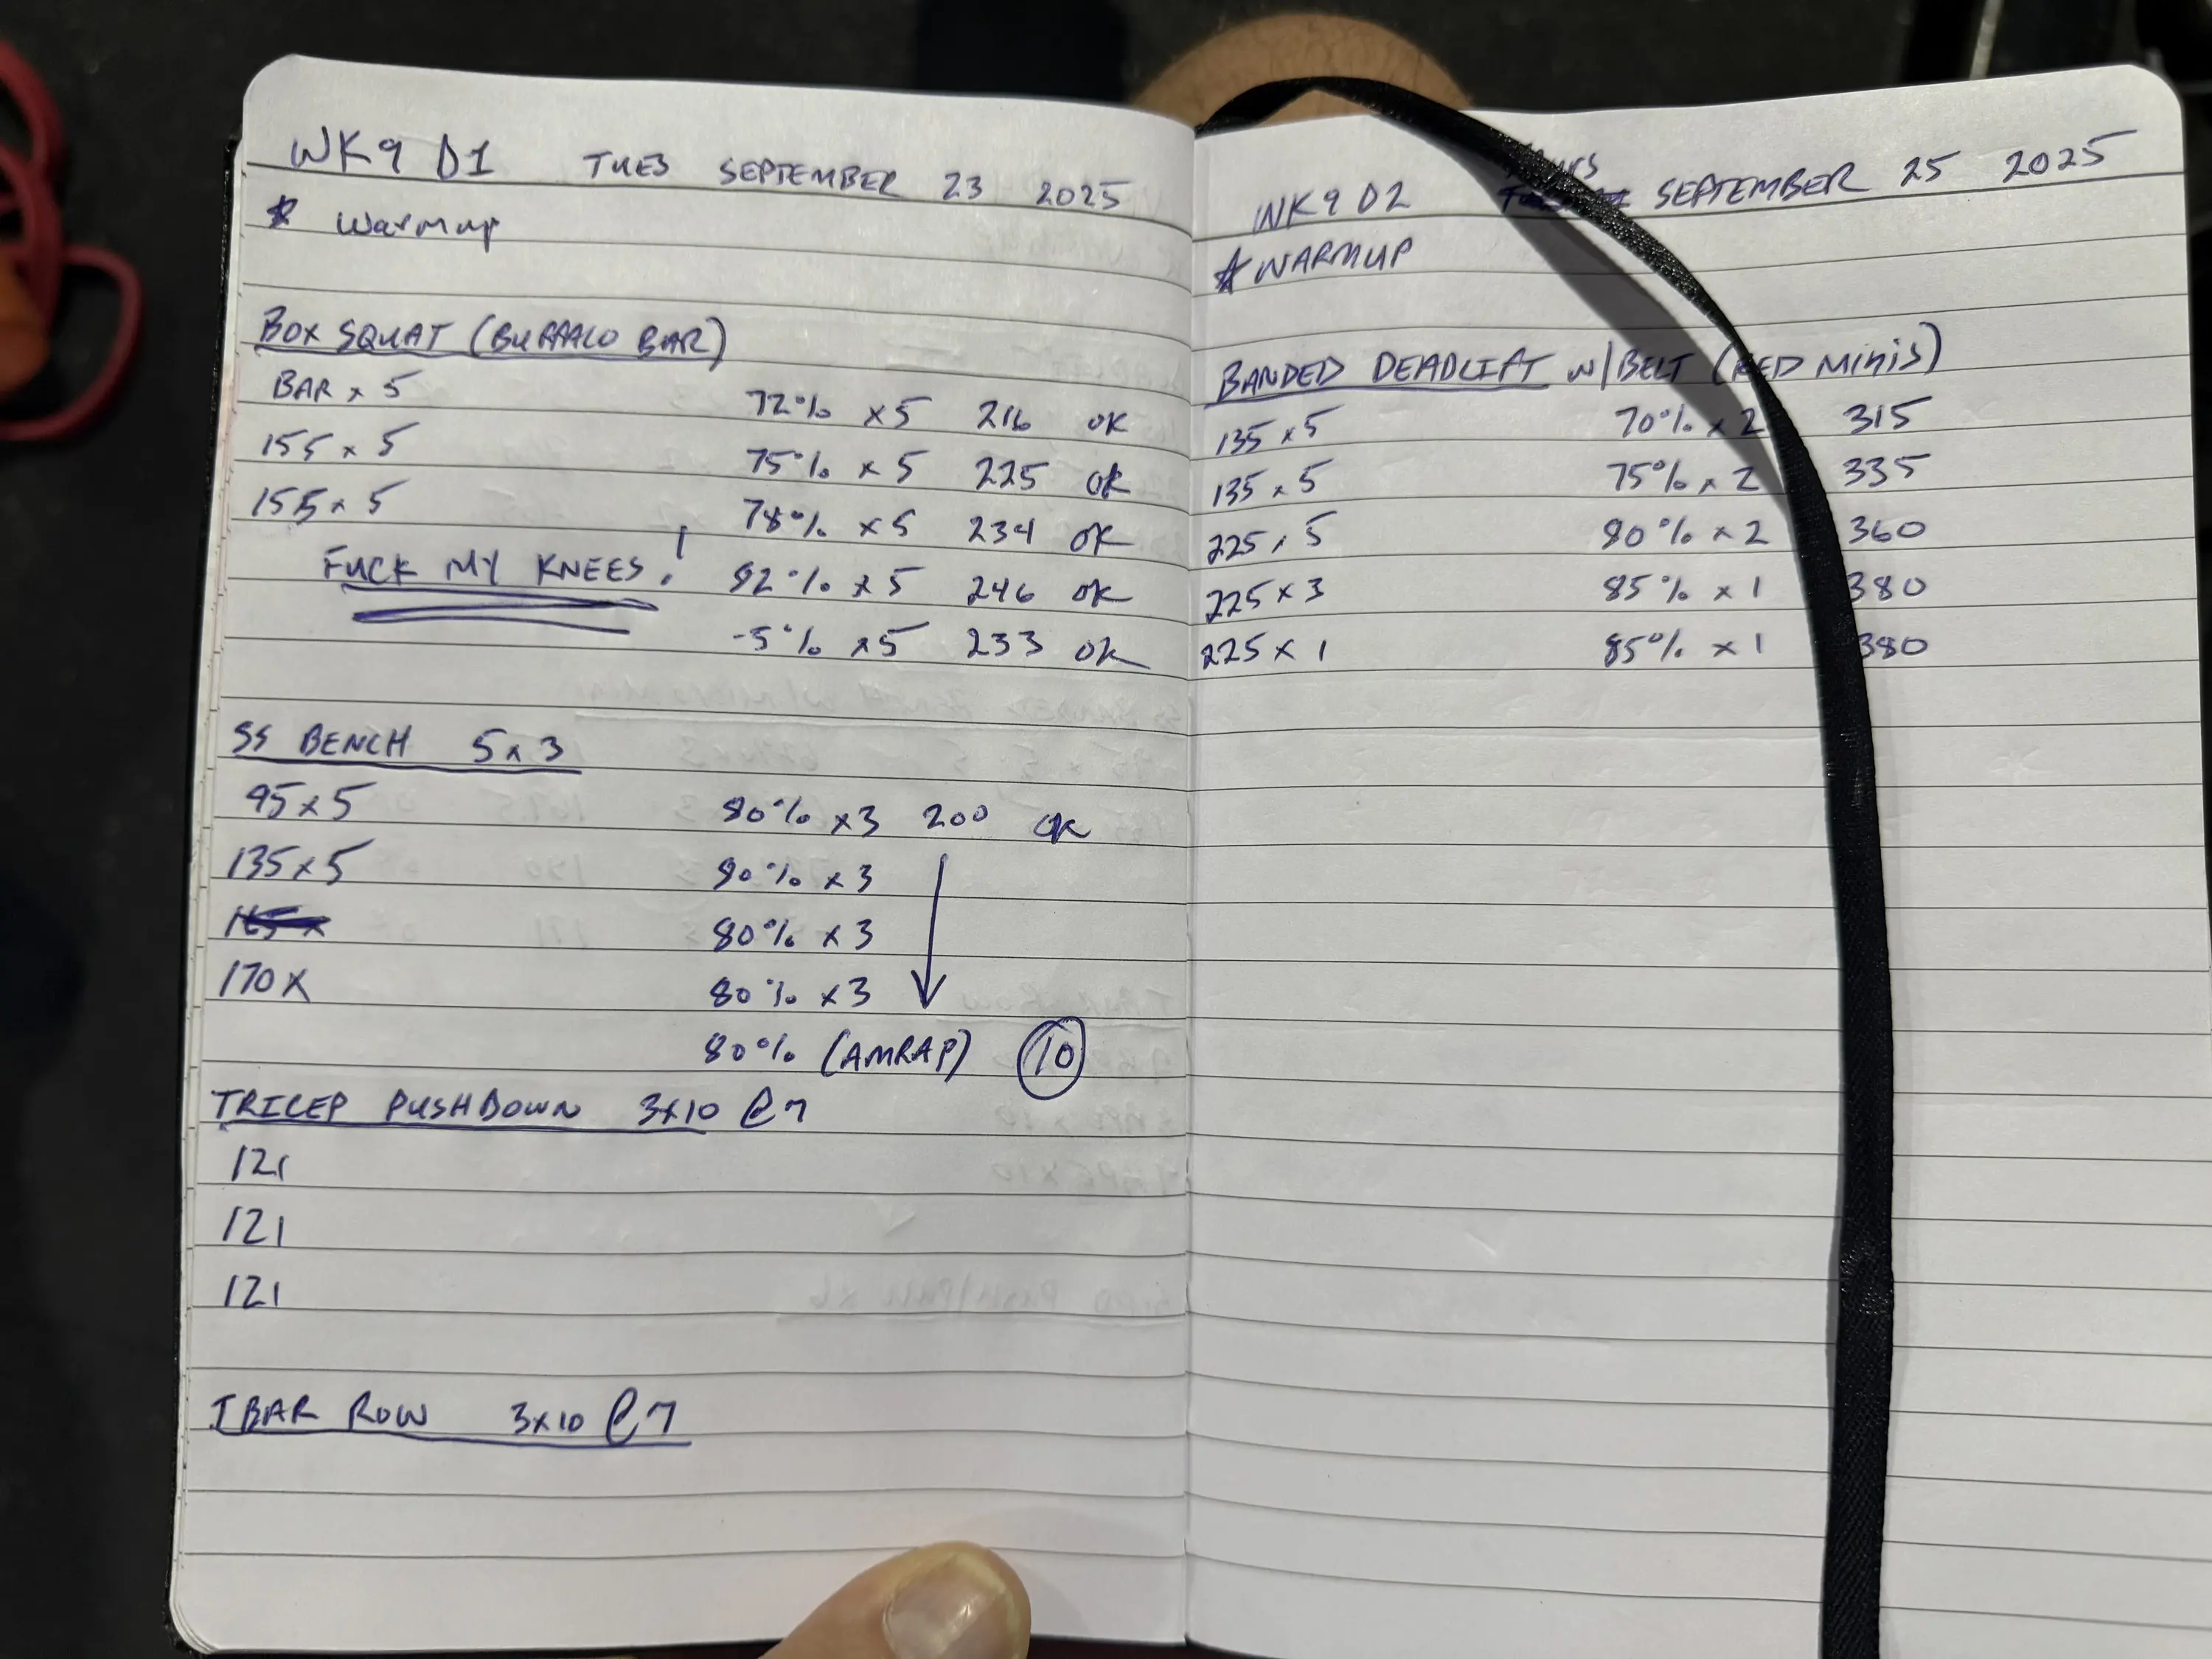 WK9 D1 TUES SEPTEMBER 23 2025
* Warmup
BOX SQUAT (BUFFALO BAR)
BAR x 5 72% x5 216 OK
155 x 5 75% x 5 225 OK
155 x 5 78% x5 234 OK
FUCK MY KNEES! 82% x 5 246 OK
-5% x5 233 OK
SS BENCH 5x3
95x5 80% x3 200 OK
135x5 80% x 3
80% x 3
170x 80% x3
80% (AMRAP) 10
TRICEP PUSHDOWN 3x10 @7
121
121
121
T BAR ROW 3x10 @7
WK9 D2 THURS SEPTEMBER 25 2025
* WARMUP
BANDED DEADLIFT W/BELT (RED MINIS)
135 x 5 70% x 2 315
135 x 5 75% x 2 335
225 x 5 80% x 2 360
225 x 3 85% x 1 380
225 x 1 85% x 1 380